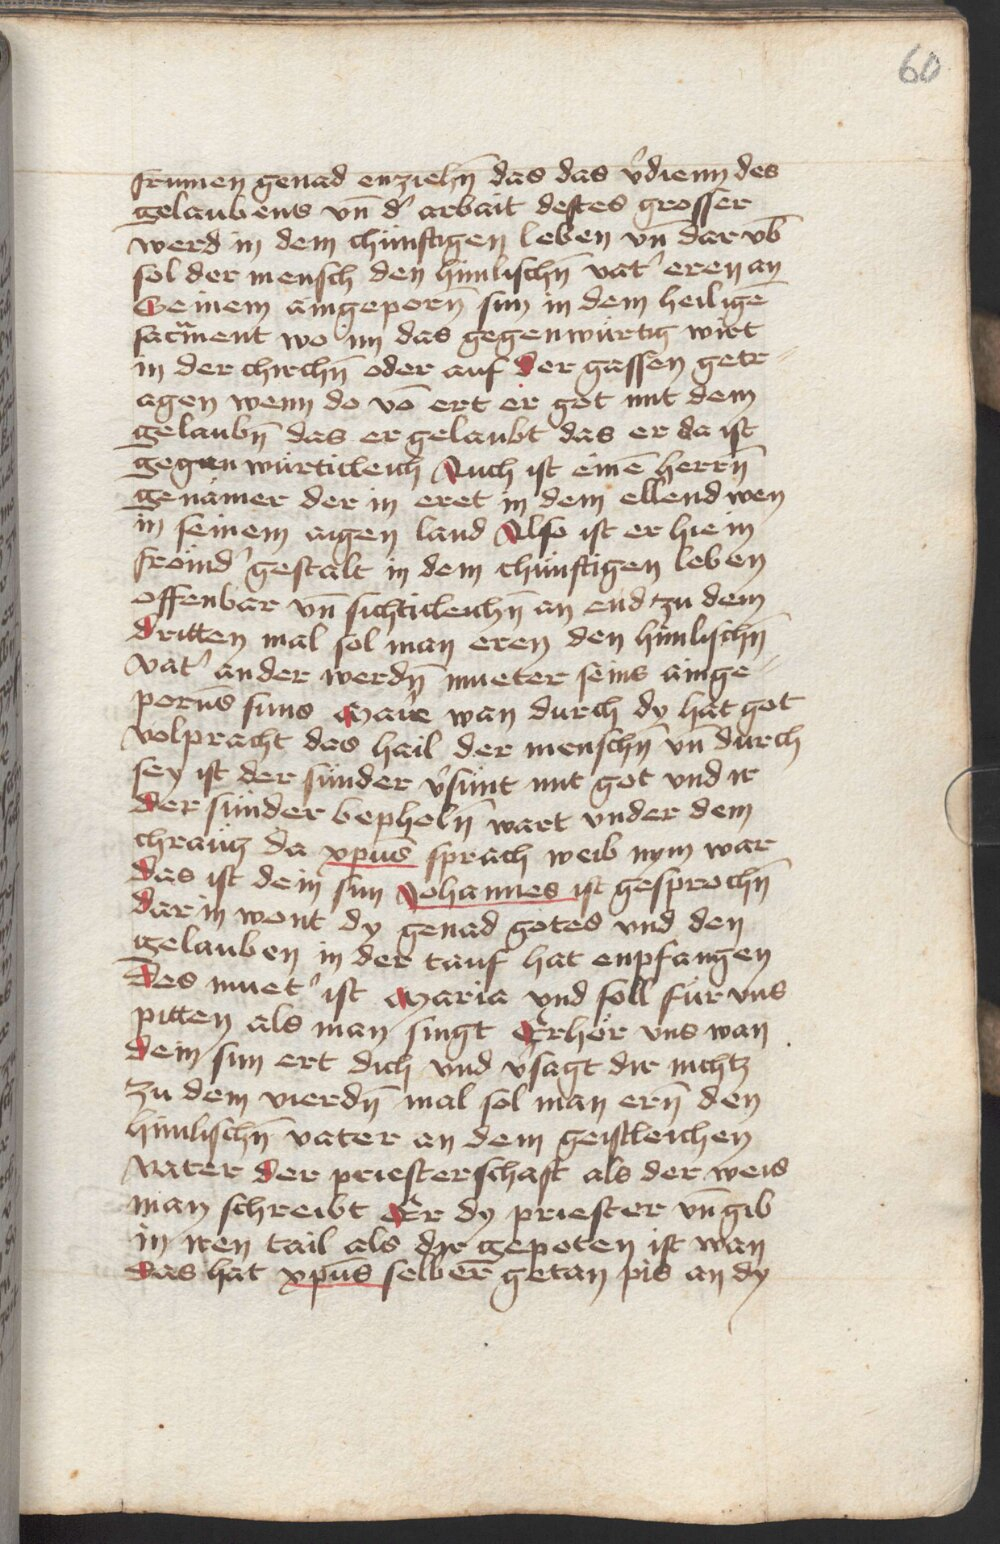 60
frumen genad enziehn̄ das das v̓dienn des
gelaubens vn̄ d̓ arbait destes grosser
werd in dem chünftigen leben vn̄ dar vb̄
sol der mensch den himlischn̄ vat̓ eren an
Seinem aingeporn̄ sun in dem heiligē
sacrament wo im das gegenwürtig wirt
in der chirchn̄ oder auf der gassen getr
agen wenn do vō ert er got mit dem
gelaubn̄ das er gelaubt das er da ist
gegenwürticleich Auch ist einē herrn̄
genämer der in eret in dem ellend wen
in seinem aigen land Also ist er hie in
frömd̓ gestalt in dem chünftigen leben
offenbar vn̄ sichticleichn̄ an end zu dem
dritten mal sol man eren den himlischn̄
vat̓ an der werdn̄ mueter seins ainge
porns̄ suns Marie wan durch dy hat got
volpracht das hail der menschn̄ vn̄ durch
sey ist der sünder v̓sünt mit got vnd ir
der sünder bepheln̄ wart vnder dem
chraütz da xpūs sprach weib nym war
das ist dein sun Johannes ist gesprochn̄
dar in wont dy genad gotes vnd den
gelauben in der tauf hat enpfangen
Des muet̓ ist Maria vnd soll für vns
pitten als man singt Erhör vns wan
dein sun ert dich vnd v̓sagt dir nichtz
zu dem vierdn̄ mal sol man ern̄ den
himlischn̄ vater an dem geistleichen
vater der priesterschaft als der weis
man schreibt Er dy priester vn̄ gib
in iren tail als dir gepoten ist wan
das hat xpūs selber getan pis an dy